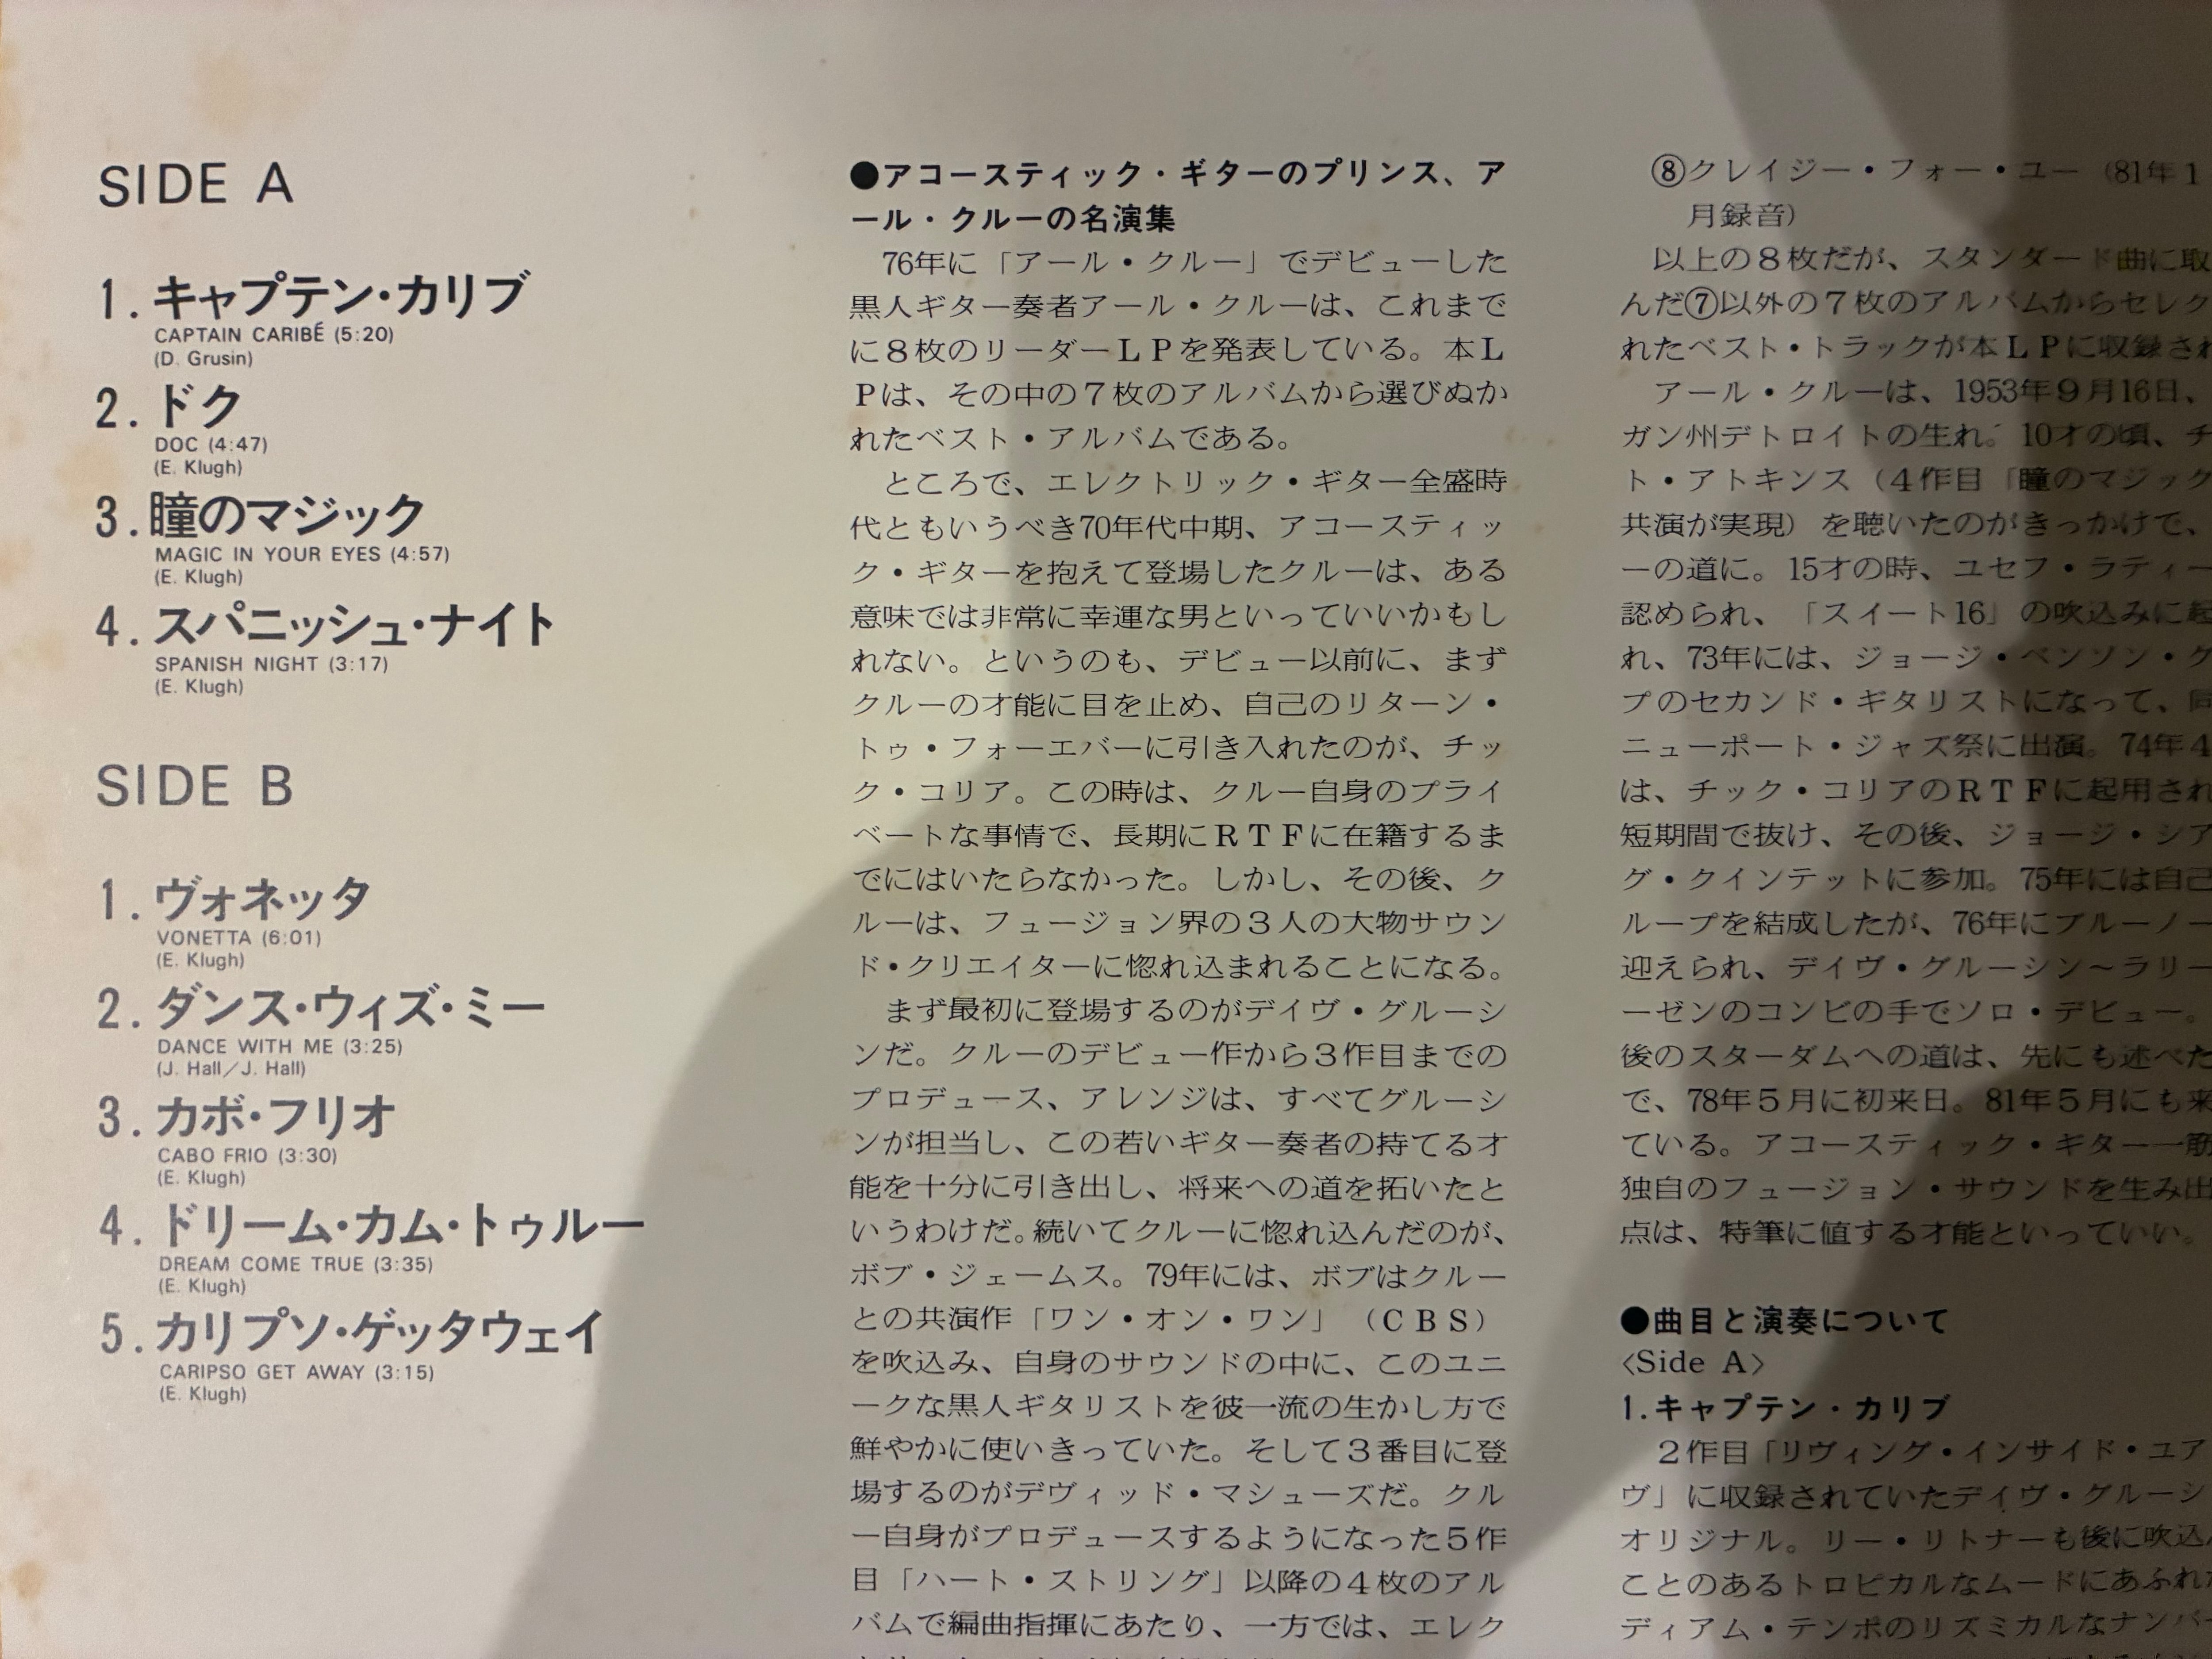 SIDE A
1.キャプテン・カリブ
CAPTAIN CARIBÉ (5:20)
(D. Grusin)
2.ドク
DOC (4:47)
(E. Klugh)
3.瞳のマジック
MAGIC IN YOUR EYES (4:57)
(E. Klugh)
4.スパニッシュ・ナイト
SPANISH NIGHT (3:17)
(E. Klugh)
SIDE B
1.ヴォネッタ
VONETTA (6:01)
(E. Klugh)
2.ダンス・ウィズ・ミー
DANCE WITH ME (3:25)
(J. Hall/J. Hall)
3.カボ・フリオ
CABO FRIO (3:30)
(E. Klugh)
4.ドリーム・カム・トゥルー
DREAM COME TRUE (3:35)
(E. Klugh)
5.カリプソ・ゲッタウェイ
CARIPSO GET AWAY (3:15)
(E. Klugh)
●アコースティック・ギターのプリンス、ア
ール・クルーの名演集
76年に「アール・クルー」でデビューした
黒人ギター奏者アール・クルーは、これまで
に8枚のリーダーLPを発表している。本L
Pは、その中の7枚のアルバムから選びぬか
れたベスト・アルバムである。
ところで、エレクトリック・ギター全盛時
代ともいうべき70年代中期、アコースティッ
ク・ギターを抱えて登場したクルーは、ある
意味では非常に幸運な男といっていいかもし
れない。というのも、デビュー以前に、まず
クルーの才能に目を止め、自己のリターン・
トゥ・フォーエバーに引き入れたのが、チッ
ク・コリア。この時は、クルー自身のプライ
ベートな事情で、長期にRTFに在籍するま
でにはいたらなかった。しかし、その後、ク
ルーは、フュージョン界の3人の大物サウン
ド・クリエイターに惚れ込まれることになる。
まず最初に登場するのがデイヴ・グルーシ
ンだ。クルーのデビュー作から3作目までの
プロデュース、アレンジは、すべてグルーシ
ンが担当し、この若いギター奏者の持てるオ
能を十分に引き出し、将来への道を拓いたと
いうわけだ。続いてクルーに惚れ込んだのが、
ボブ・ジェームス。79年には、ボブはクルー
との共演作「ワン・オン・ワン」(CBS)
を吹込み、自身のサウンドの中に、このユニ
ークな黒人ギタリストを彼一流の生かし方で
鮮やかに使いきっていた。そして3番目に登
場するのがデヴィッド・マシューズだ。クル
ー自身がプロデュースするようになった5作
目「ハート・ストリング」以降の4枚のアル
バムで編曲指揮にあたり、一方では、エレク
⑧クレイジー・フォー・ユー(81年1
月録音)
以上の8枚だが、スタンダード曲に取
んだ⑦以外の7枚のアルバムからセレク
れたベスト・トラックが本LPに収録され
アール・クルーは、1953年9月16日、
ガン州デトロイトの生れ。10才の頃、チ
ト・アトキンス(4作目「瞳のマジック
共演が実現)を聴いたのがきっかけで、
ーの道に。15才の時、ユセフ・ラティー
認められ、「スイート16」の吹込みに起
れ、73年には、ジョージ・ベンソン・グ
プのセカンド・ギタリストになって、同
ニューポート・ジャズ祭に出演。74年4
は、チック・コリアのRTFに起用され
短期間で抜け、その後、ジョージ・シア
グ・クインテットに参加。75年には自己
ループを結成したが、76年にブルーノー
迎えられ、デイヴ・グルーシン〜ラリー
ーゼンのコンビの手でソロ・デビュー。
後のスターダムへの道は、先にも述べた
で、78年5月に初来日。81年5月にも来
ている。アコースティック・ギター一筋
独自のフュージョン・サウンドを生み出
点は、特筆に値する才能といっていい。
●曲目と演奏について
〈Side A〉
1.キャプテン・カリブ
2作目「リヴィング・インサイド・ユア
ヴ」に収録されていたデイヴ・グルーシ
オリジナル。リー・リトナーも後に吹込
ことのあるトロピカルなムードにあふれ
ディアム・テンポのリズミカルなナンバ